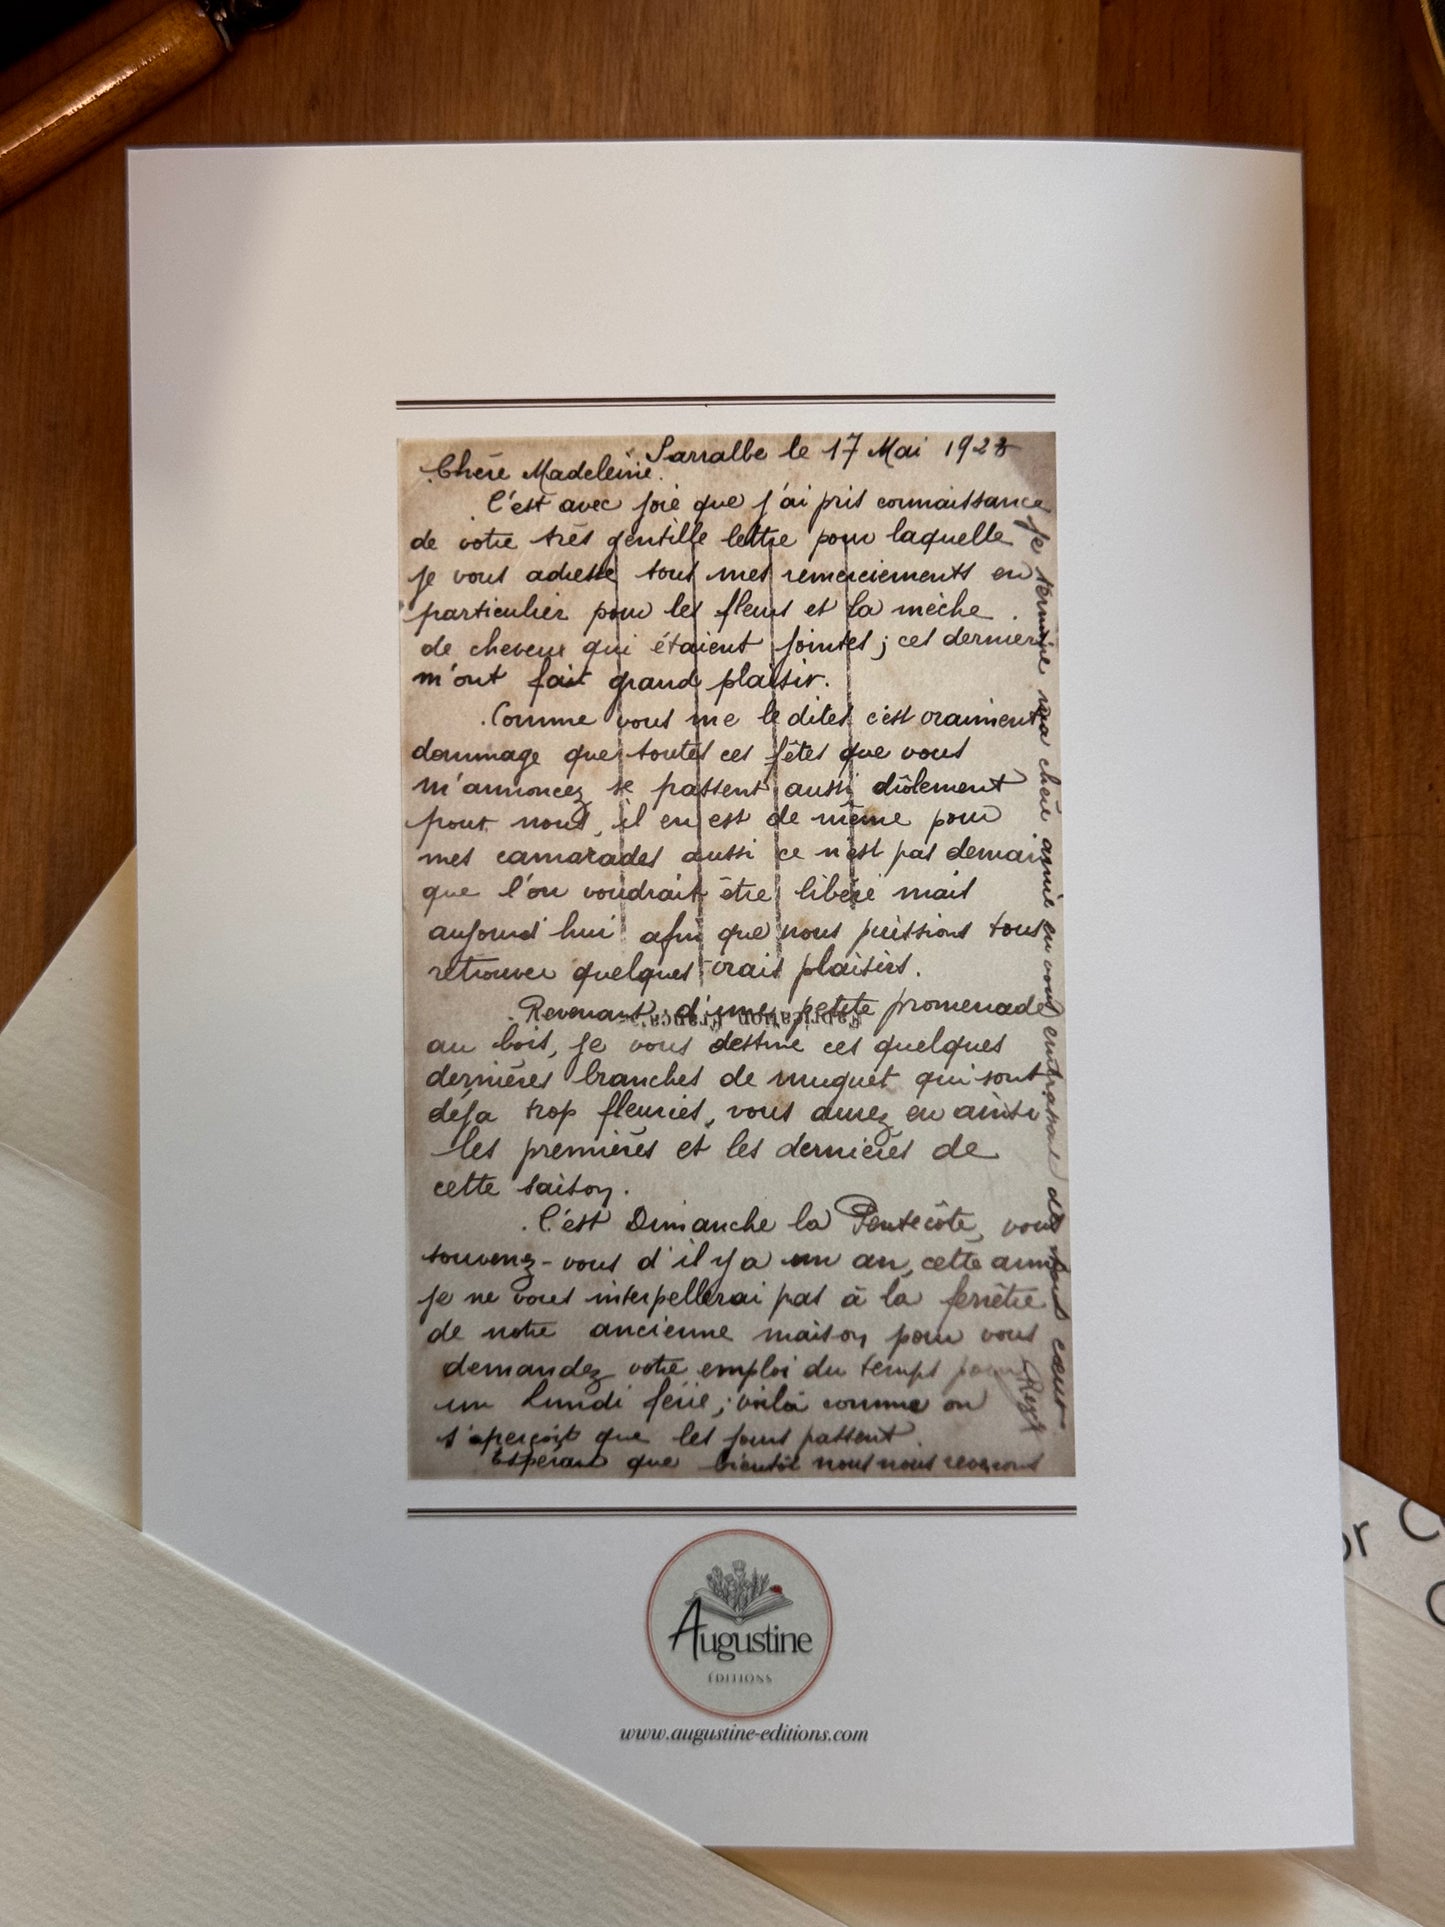 Sarralbe le 17 Mai 1928
Chère Madeleine.
C'est avec joie que j'ai pris connaissance
de votre très gentille lettre pour laquelle
je vous adresse tous mes remerciements en
particulier pour les fleurs et la mèche
de cheveux qui étaient jointes; ces derniers
m'ont fait grand plaisir.
Comme vous me le dites c'est vraiment
dommage que toutes ces fêtes que vous
m'annoncez se passent aussi drôlement
pour nous, il en est de même pour
mes camarades aussi ce n'est pas demain
que l'on voudrait être libéré mais
aujourd'hui afin que nous puissions tous
retrouver quelques vrais plaisirs.
Revenant d'une petite promenade
Fabrication Française
au bois, je vous destine ces quelques
dernières branches de muguet qui sont
déja trop fleuries, vous aurez eu ainsi
les premières et les dernières de
cette saison.
C'est Dimanche la Pentecôte, vous
souvenez-vous d'il y a un an, cette année
je ne vous interpellerai pas à la fenêtre
de notre ancienne maison pour vous
demandez votre emploi du temps pour
un lundi férié; voilà comme on
s'aperçoit que les jours passent.
Espérant que bientôt nous nous reverrons
Je termine ma chère amie en vous embrassant de tout cœur
Augustine
ÉDITIONS
www.augustine-editions.com
or